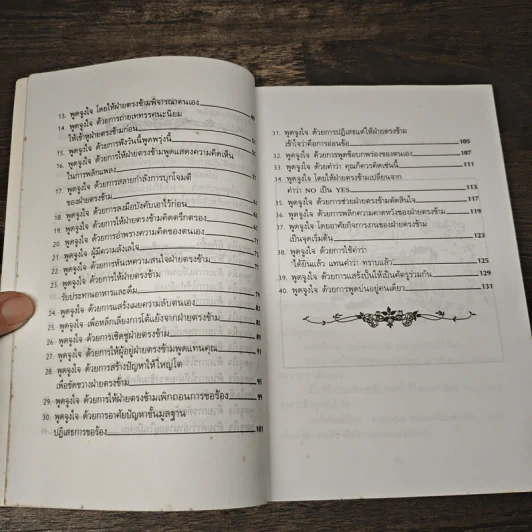 13. พูดจูงใจ โดยให้ฝ่ายตรงข้ามพิจารณาตนเอง
14. พูดจูงใจ ด้วยการถ่ายเททรรศนะนิยม
ให้เข้าหูฝ่ายตรงข้ามก่อน
15. พูดจูงใจ ด้วยการฟังวันนี้พูดพรุ่งนี้
16. พูดจูงใจ ด้วยการให้ฝ่ายตรงข้ามพูดแสดงความคิดเห็น
ในการพลิกแพลง
17. พูดจูงใจ ด้วยการสลายกำลังการบุกโจมตี
ของฝ่ายตรงข้าม
18. พูดจูงใจ ด้วยการลงมือบังคับเอาไว้ก่อน
19. พูดจูงใจ ด้วยการให้ฝ่ายตรงข้ามคิดตริกตรอง
20. พูดจูงใจ ด้วยการอำพรางความคิดของตนเอง 71
21. พูดจูงใจ ผู้มีความลังเลใจ 73
22. พูดจูงใจ ด้วยการหันเหความสนใจฝ่ายตรงข้าม 77
23. พูดจูงใจ ด้วยการให้ฝ่ายตรงข้าม
รับประทานอาหารและดื่ม 79
24. พูดจูงใจ ด้วยการแสร้งเผยความลับตนเอง 83
25. พูดจูงใจ เพื่อหลีกเลี่ยงการโต้แย้งจากฝ่ายตรงข้าม 85
26. พูดจูงใจ ด้วยการเชิดชูฝ่ายตรงข้าม 89
27. พูดจูงใจ ด้วยการให้ผู้อยู่ฝ่ายตรงข้ามพูดแทนคุณ 91
28. พูดจูงใจ ด้วยการสร้างปัญหาให้ใหญ่โต
เพื่อขัดขวางฝ่ายตรงข้าม 95
29. พูดจูงใจ ด้วยการให้ฝ่ายตรงข้ามเพิกถอนการขอร้อง 99
30. พูดจูงใจ ด้วยการอาศัยปัญหาขั้นมูลฐาน
ปฏิเสธการขอร้อง 101
31. พูดจูงใจ ด้วยการปฏิเสธแต่ให้ฝ่ายตรงข้าม
เข้าใจว่าคือการอ่อนข้อ 105
32. พูดจูงใจ ด้วยการพูดข้อบกพร่องของตนเอง 107
33. พูดจูงใจ ด้วยคำว่า คุณก็ควรคิดเช่นนี้ 111
34. พูดจูงใจ โดยให้ฝ่ายตรงข้ามเปลี่ยนจาก
คำว่า NO เป็น YES 113
35. พูดจูงใจ ด้วยการช่วยฝ่ายตรงข้ามตัดสินใจ 117
36. พูดจูงใจ ด้วยการพลิกความคาดหวังของฝ่ายตรงข้าม 119
37. พูดจูงใจ โดยอาศัยกิจการงานของฝ่ายตรงข้าม
เป็นจุดเริ่มต้น 123
38. พูดจูงใจ ด้วยการใช้คำว่า
ได้ยินแล้ว แทนคำว่า ทราบแล้ว 125
39. พูดจูงใจ ด้วยการแสร้งปั้นให้เป็นศัตรูร่วมกัน 129
40. พูดจูงใจ ด้วยการพูดบ่นอยู่คนเดียว 131